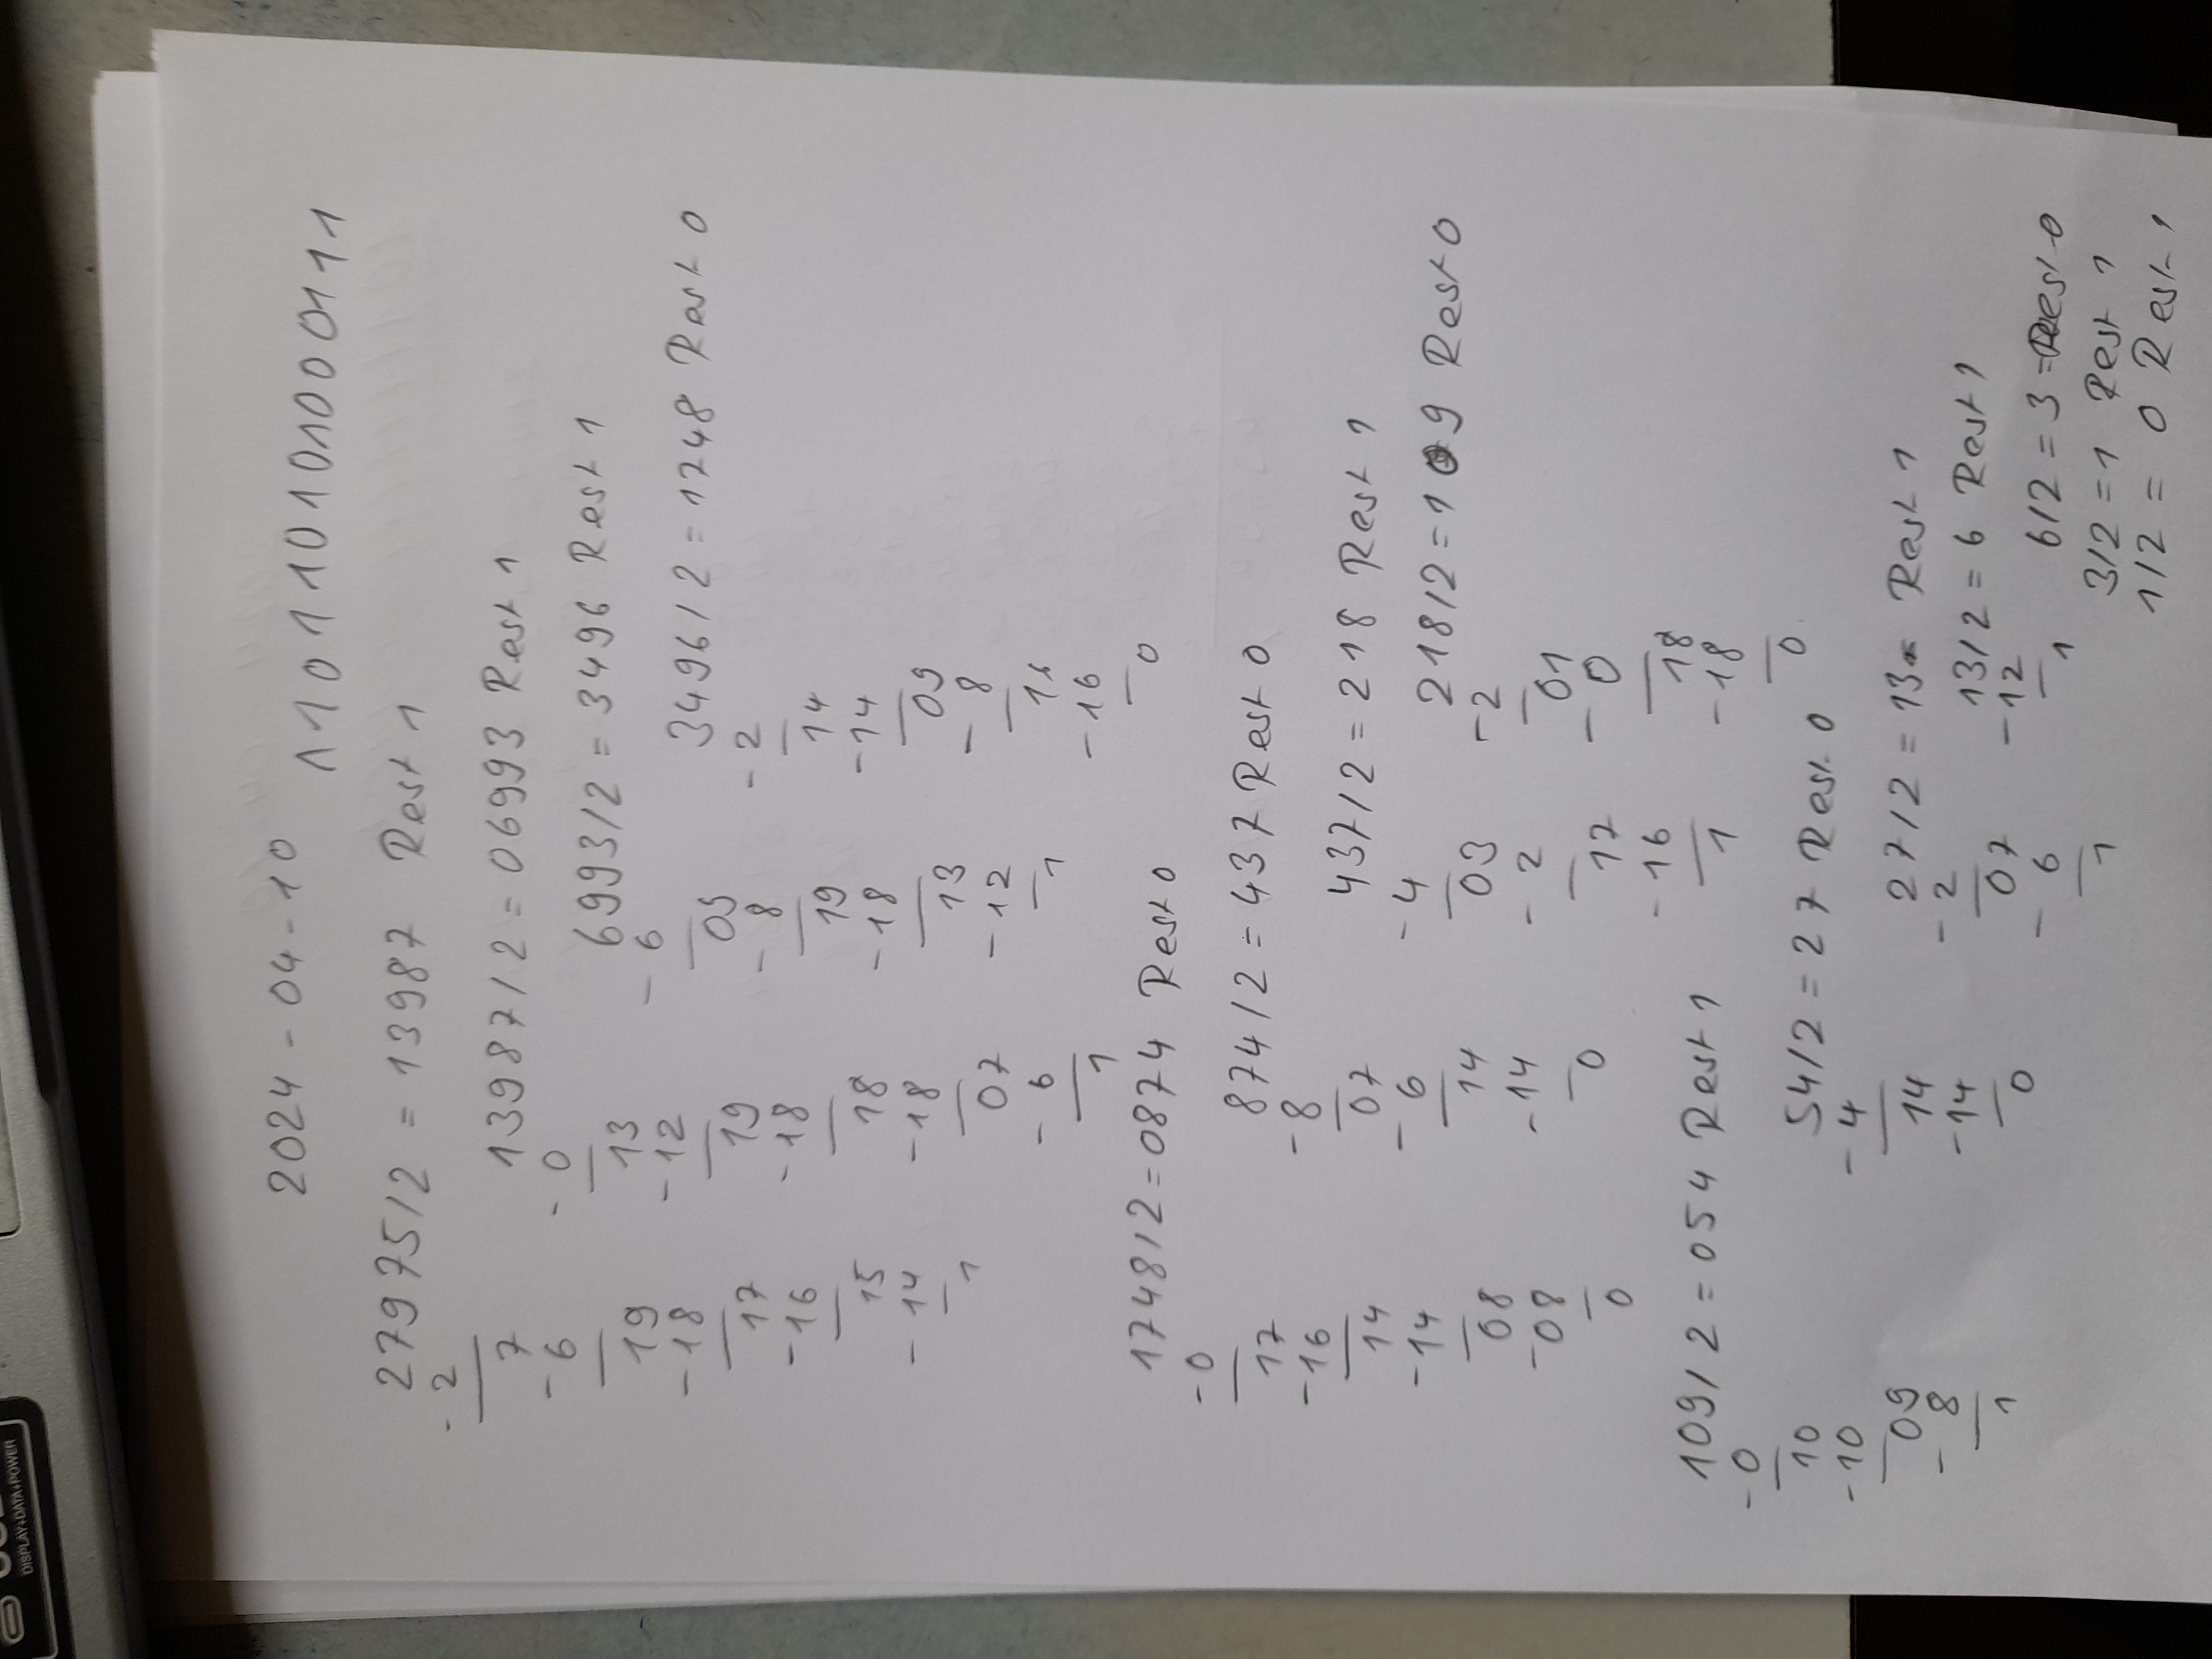 2024-04-10
110110101000111
27975/2 = 13987 Rest 1
-2
7
-6
19
-18
17
-16
15
-14
1
13987/2 = 06993 Rest 1
-0
13
-12
19
-18
18
-18
07
-6
1
6993/2 = 3496 Rest 1
-6
09
-8
19
-18
13
-12
1
3496/2 = 1748 Rest 0
-2
14
-14
09
-8
16
-16
0
1748/2=0874 Rest 0
-0
17
-16
14
-14
08
-08
0
874/2=437 Rest 0
-8
07
-6
14
-14
0
437/2=218 Rest 1
-4
03
-2
17
-16
1
218/2=109 Rest 0
-2
01
-0
18
-18
0
109/2=054 Rest 1
-0
10
-10
09
-8
1
54/2=27 Rest 0
-4
14
-14
0
27/2=13 Rest 1
-2
07
-6
1
13/2=6 Rest 1
-12
1
6/2=3 Rest 0
3/2=1 Rest 1
1/2=0 Rest 1
DISPLAY+DATA+POWER